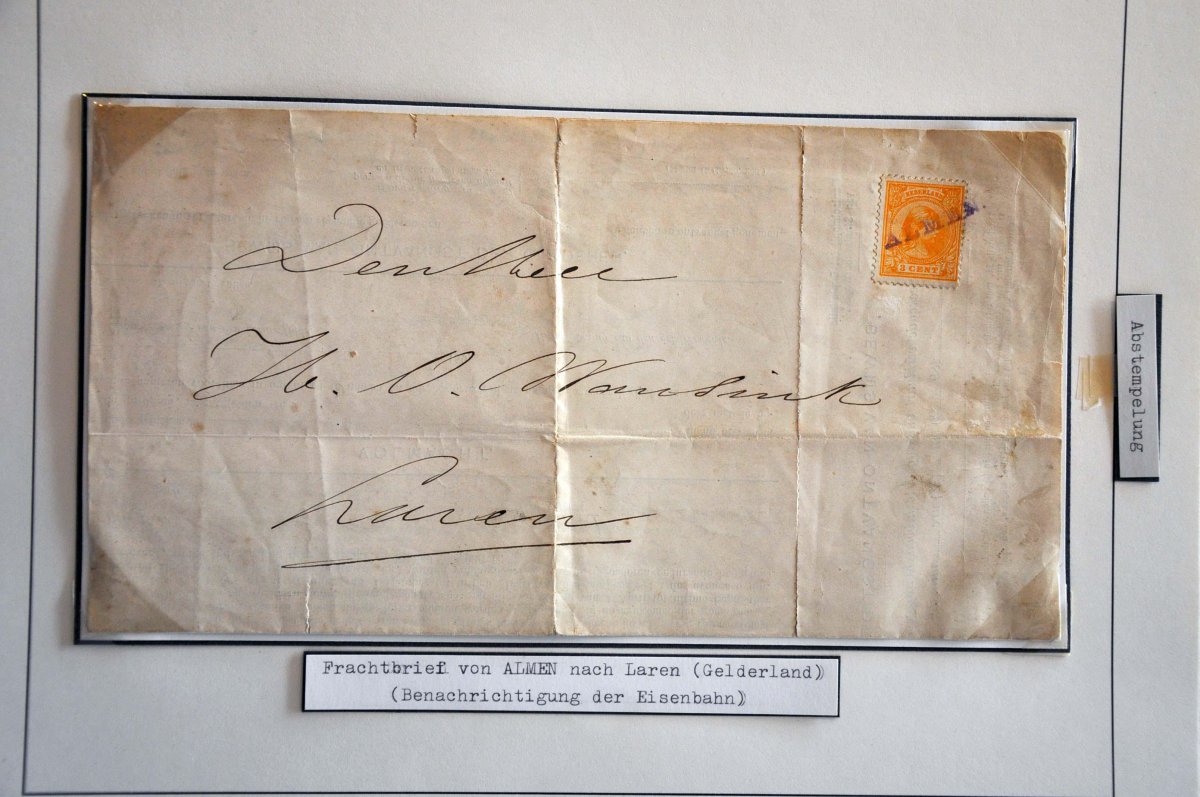 NEDERLAND
3 CENT
ALMEN
Den Heer
H. O. Wansink
Laren
Abstempelung
Frachtbrief von ALMEN nach Laren (Gelderland)
(Benachrichtigung der Eisenbahn)